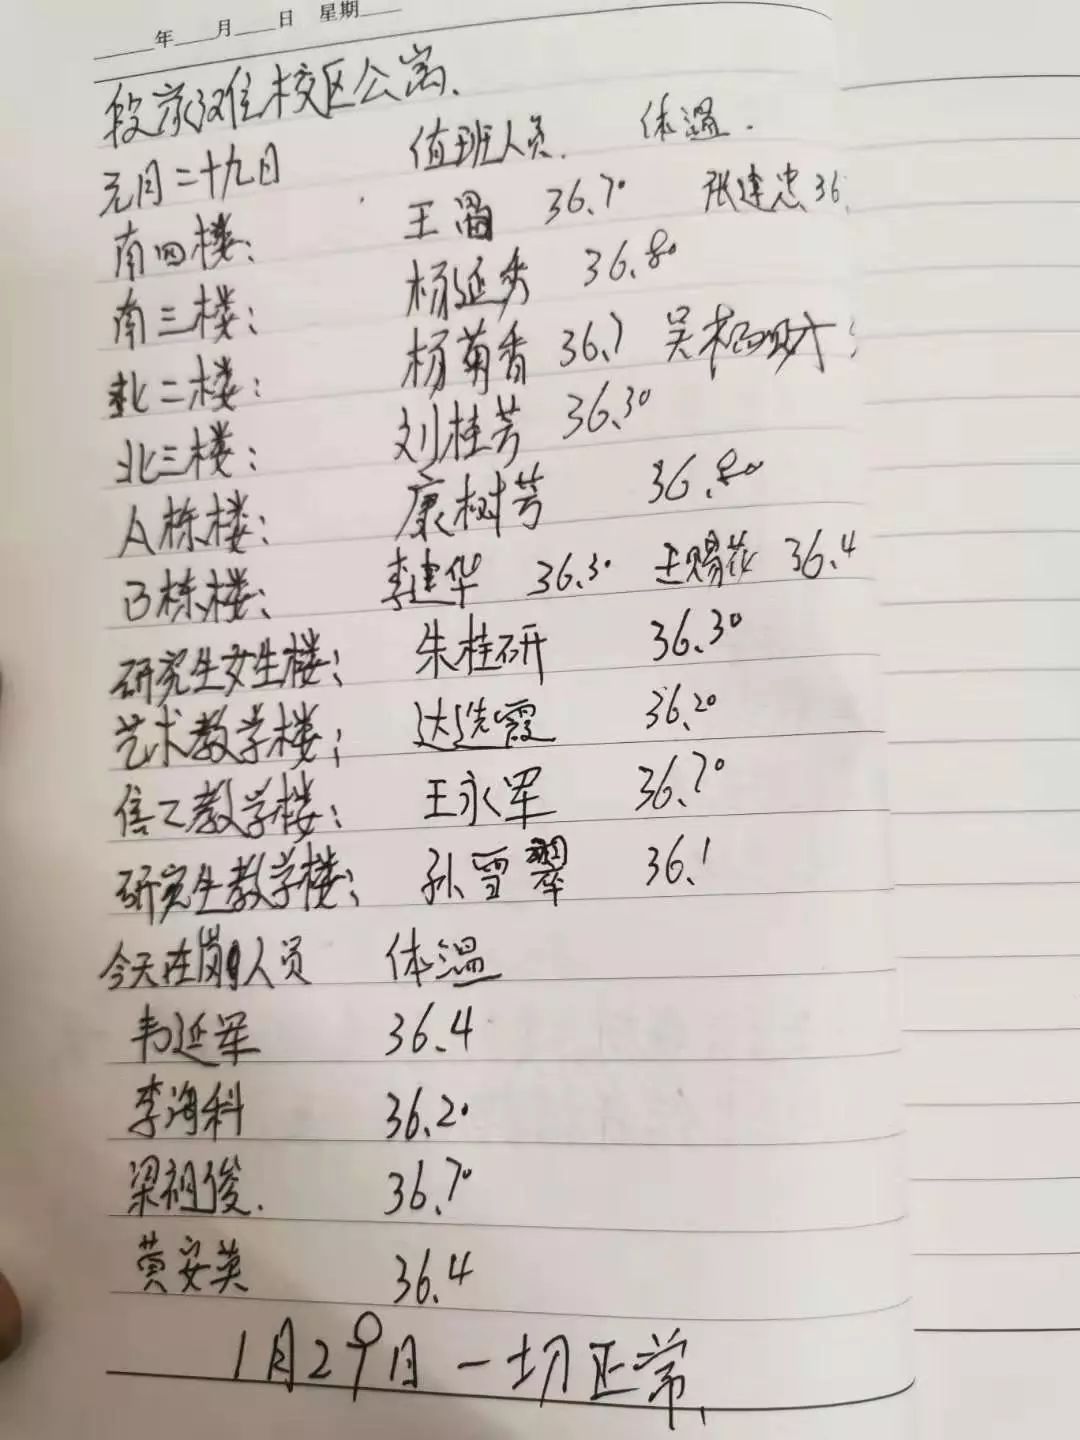 年 月 日 星期
段家滩校区公寓.
元月二十九日 值班人员. 体温.
南四楼: 王 36.7° 张建忠 36.
南三楼: 杨延秀 36.8°
北二楼: 杨菊香 36.7 吴
北三楼: 刘桂芳 36.3°
A栋楼: 康树芳 36.8°
B栋楼: 李建华 36.3° 王赐花 36.4
研究生女生楼: 朱桂研 36.3°
艺术教学楼: 达选霞 36.2°
信工教学楼: 王永军 36.7°
研究生教学楼: 孙雪翠 36.1
今天在岗人员 体温
韦延军 36.4
李海科 36.2°
梁祖俊. 36.7°
黄安英 36.4
1月29日一切正常.